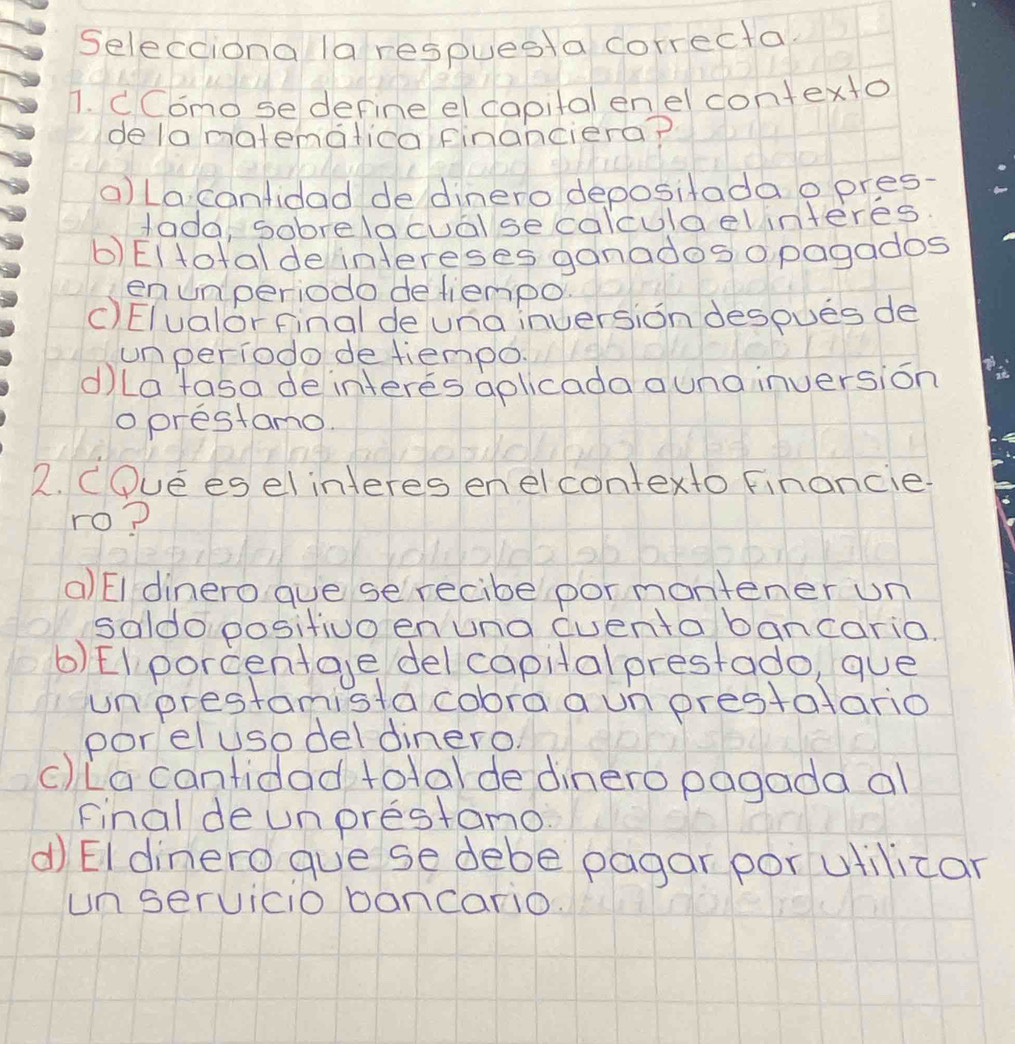 Selecciona la respuesta correcta.
1. ¿Cómo se define el capital en el contexto
de la matemática financiera?
a) La cantidad de dinero depositada o pres-
tada, sobre la cuál se calcula el interés.
b) El total de intereses ganados o pagados
en un periodo de tiempo.
c) El valor final de una inversión después de
un período de tiempo.
d) La tasa de interés aplicada a una inversión
o préstamo.
2. ¿Qué es el interes en el contexto financie-
ro?
a) El dinero que se recibe por mantener un
saldo positivo en una cuenta bancaria.
b) El porcentaje del capital prestado, que
un prestamista cobra a un prestatario
por el uso del dinero.
c) La cantidad total de dinero pagada al
final de un préstamo.
d) El dinero que se debe pagar por utilizar
un servicio bancario.